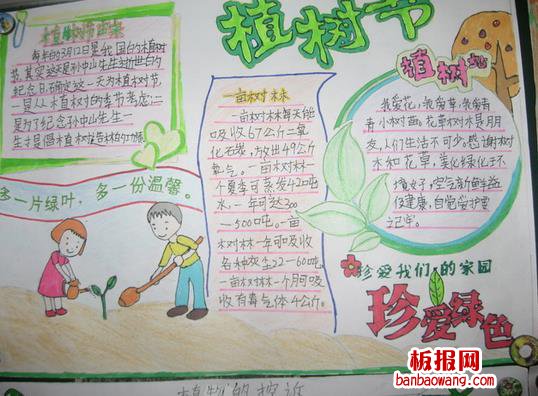 植树节
植树节由来
每年的3月12日是我国的植树
节,其实这是孙中山先生逝世的
纪念日,确定这一天为植树节,
一是从植树的季节考虑;二
是为了纪念孙中山先生一
生
多一片绿叶,多一份温馨。
一亩树林
一亩树林每天能
吸收67公斤二氧
化石炭,放出49公斤
氧气。一亩树林一
个夏季可蒸发42吨
水,一年可达300
—500吨。一亩
树林一年可吸收
各种灰尘22—60吨
一亩树林一个月可吸
收有毒气体4公斤。
植树
我爱花,我爱草,我爱青
青小树苗。花草树木是朋
友,人们生活不可少。感谢树
木和花草,美化绿化
搞好,空气新鲜益
健康,自觉爱护要
记牢。
珍爱我们的家园
珍爱绿色
板报网
banbaowang.com
植物的控诉